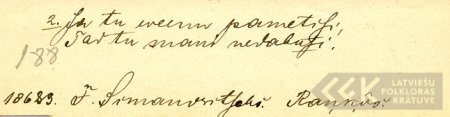 2. Ja tu weenu pametisi,
Tad tu mani nedabusi.
188
18623. F. Simanowitschs. Raņņôs.
LATVIEŠU
FOLKLORAS
KRĀTUVE